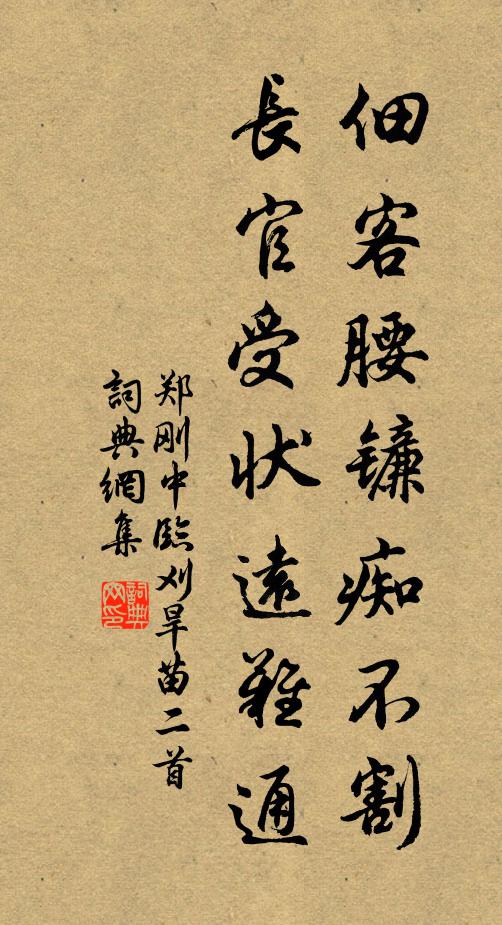 佃客腰镰痴不割
長官受状遠難通
郑刚中臨刈旱苗二首
詞典網集
詞典网印